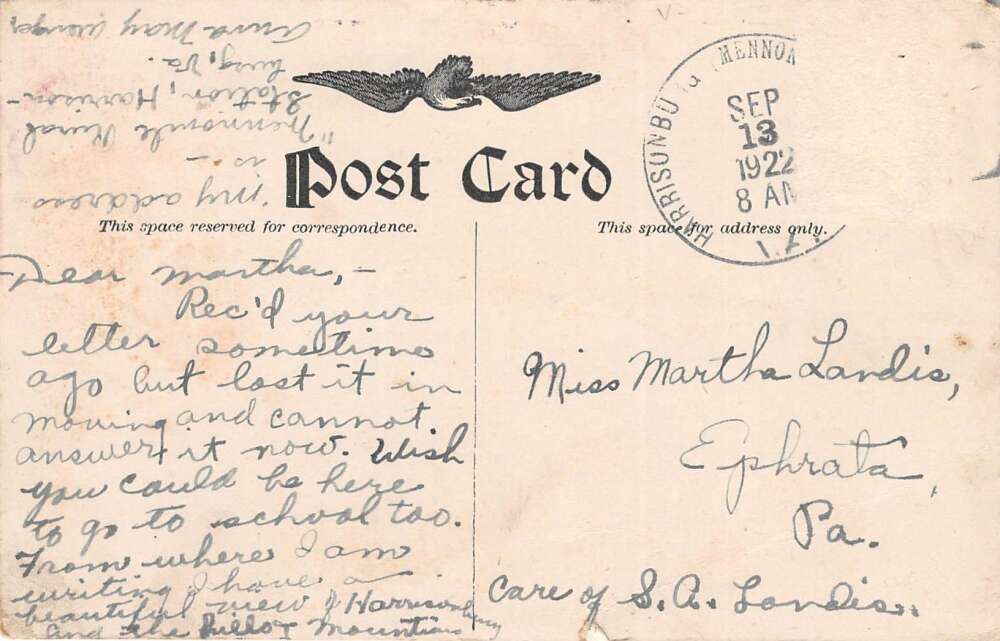 My address
is -
"Mennonite Rural
Station, Harrison-
burg, Va.
Anna May
Post Card
This space reserved for correspondence.
This space for address only.
HARRISONBU MENNON
SEP
13
1922
8 AM
VA.
Dear Martha, -
Rec'd your
letter sometime
ago but lost it in
moving and cannot
answer it now. Wish
you could be here
to go to school too.
From where I am
writing I have a
beautiful view of Harrisonburg
and the hills & mountains
Miss Martha Landis,
Ephrata,
Pa.
Care of S. A. Landis.